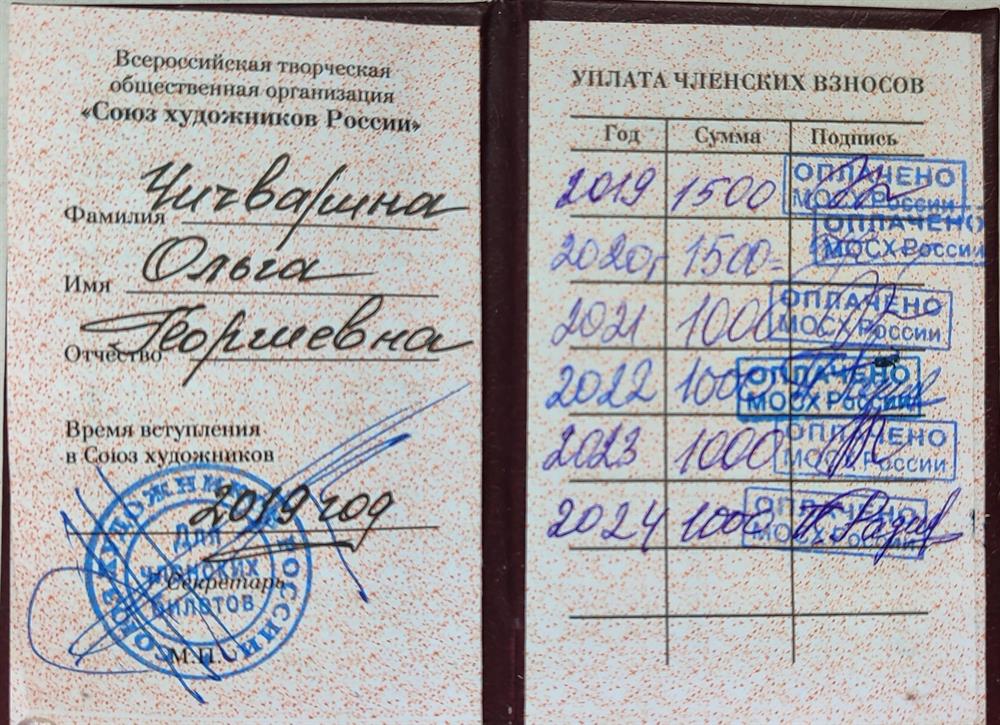 Всероссийская творческая
общественная организация
«Союз художников России»
Фамилия Чичварина
Имя Ольга
Отчество Георгиевна
Время вступления
в Союз художников
2019 год
Секретарь
М.П.
СОЮЗ ХУДОЖНИКОВ РОССИИ
ДЛЯ
ЧЛЕНСКИХ
БИЛЕТОВ
УПЛАТА ЧЛЕНСКИХ ВЗНОСОВ
Год Сумма Подпись
2019 1500 ОПЛАЧЕНО
МОСХ России
2020г 1500= ОПЛАЧЕНО
МОСХ России
2021 1000 ОПЛАЧЕНО
МОСХ России
2022 1000 ОПЛАЧЕНО
МОСХ России
2023 1000 ОПЛАЧЕНО
МОСХ России
2024 1000 ОПЛАЧЕНО
МОСХ России